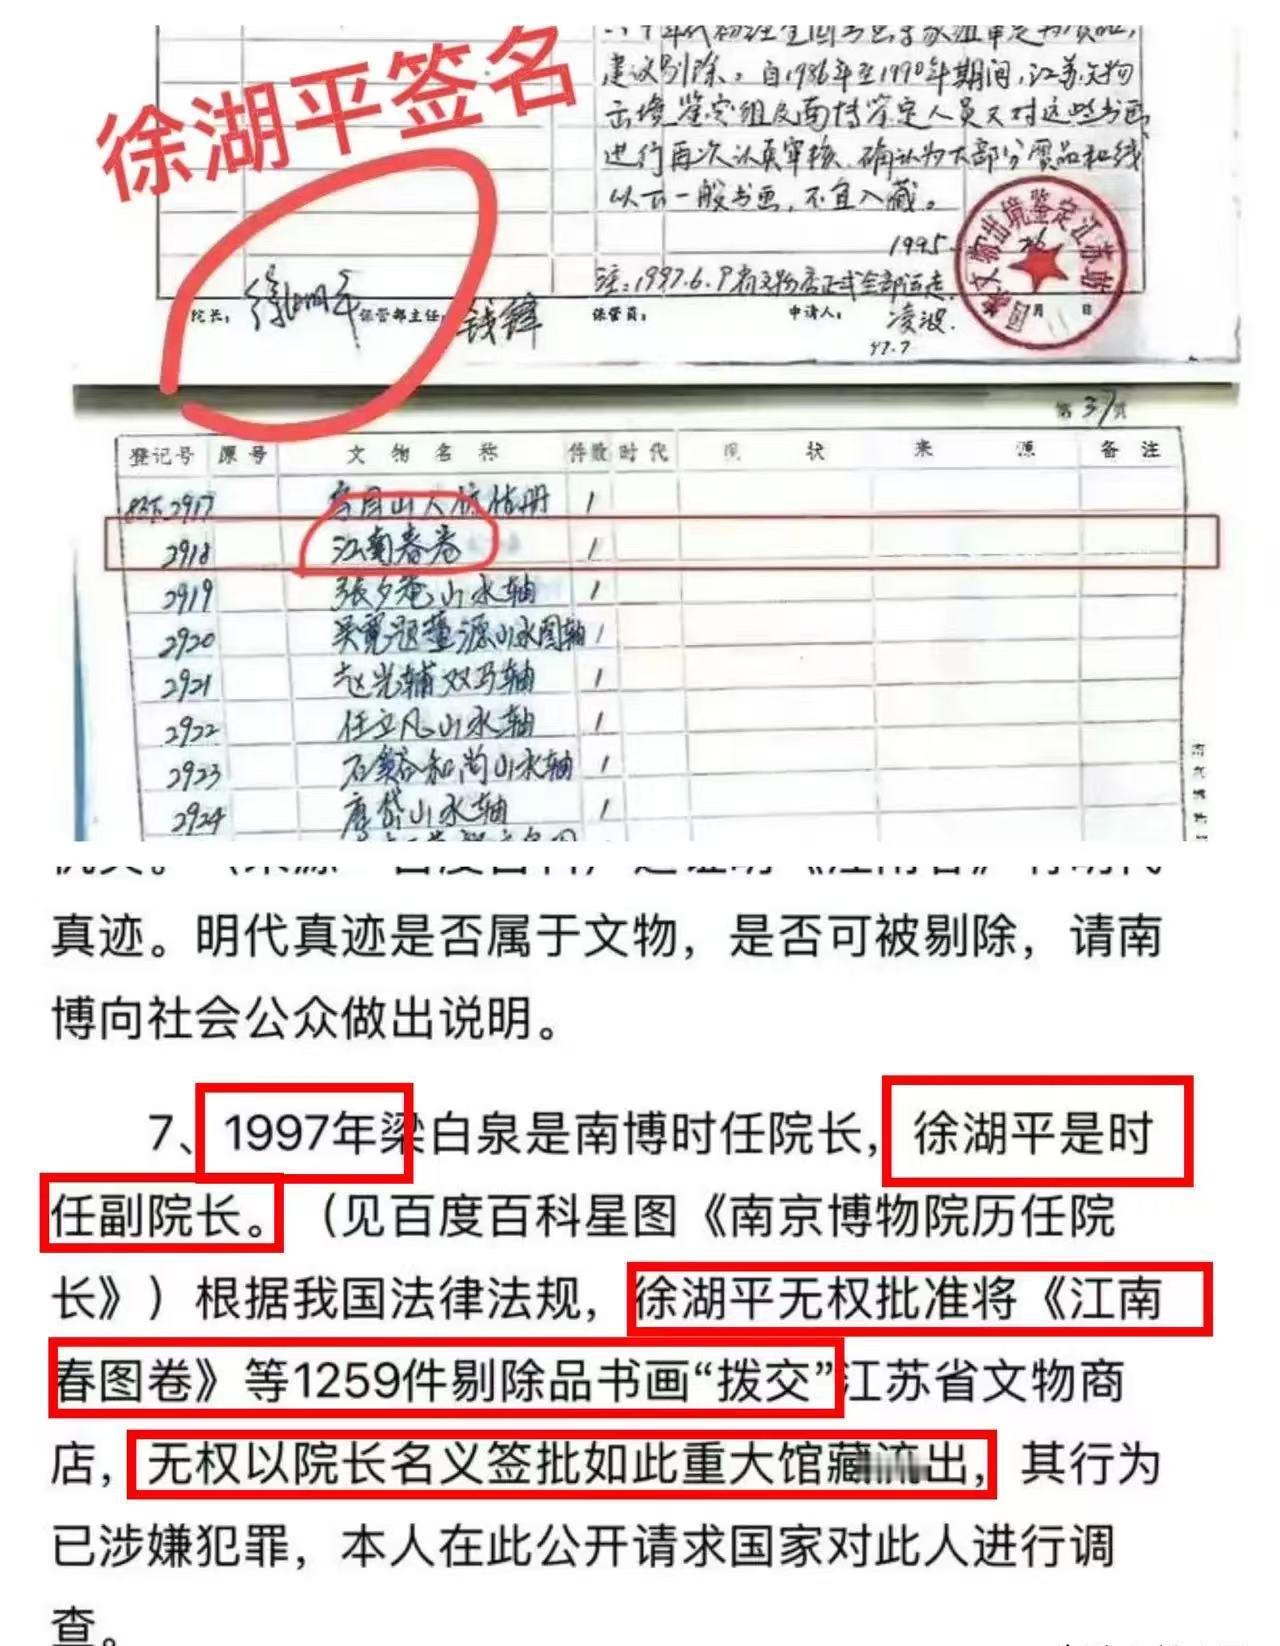 徐湖平签名
建议剔除。自1986年至1990年期间,江苏文物
出境鉴定组及南博鉴定人员又对这些书画
进行再次认真审核,确认为大部分赝品和线
以下一般书画,不宜入藏。
1995
注:1997.6.9 全部运走
院长: 徐湖平 保管部主任: 钱锋 保管员: 申请人: 凌波.
97.7
国家文物出境鉴定江苏站
月 日
第37页
登记号 原号 文物名称 件数 时代 现状 来源 备注
2917 1
2918 江南春卷 1
2919 張夕菴山水轴 1
2920 吴寛题董源山水图轴 1
2921 赵光辅双马轴 1
2922 任立凡山水轴 1
2923 石溪和尚山水轴 1
2924 唐岱山水轴 1
真迹。明代真迹是否属于文物，是否可被剔除，请南
博向社会公众做出说明。
7、1997年梁白泉是南博时任院长，徐湖平是时
任副院长。（见百度百科星图《南京博物院历任院
长》）根据我国法律法规，徐湖平无权批准将《江南
春图卷》等1259件剔除品书画“拨交”江苏省文物商
店，无权以院长名义签批如此重大馆藏流出，其行为
已涉嫌犯罪，本人在此公开请求国家对此人进行调
查。